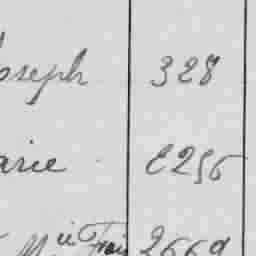 Joseph 328
arie E256
M^ie Frais 2669